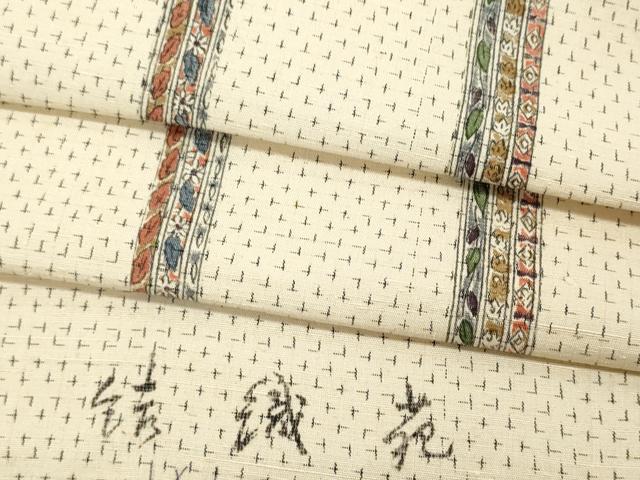 結織苑